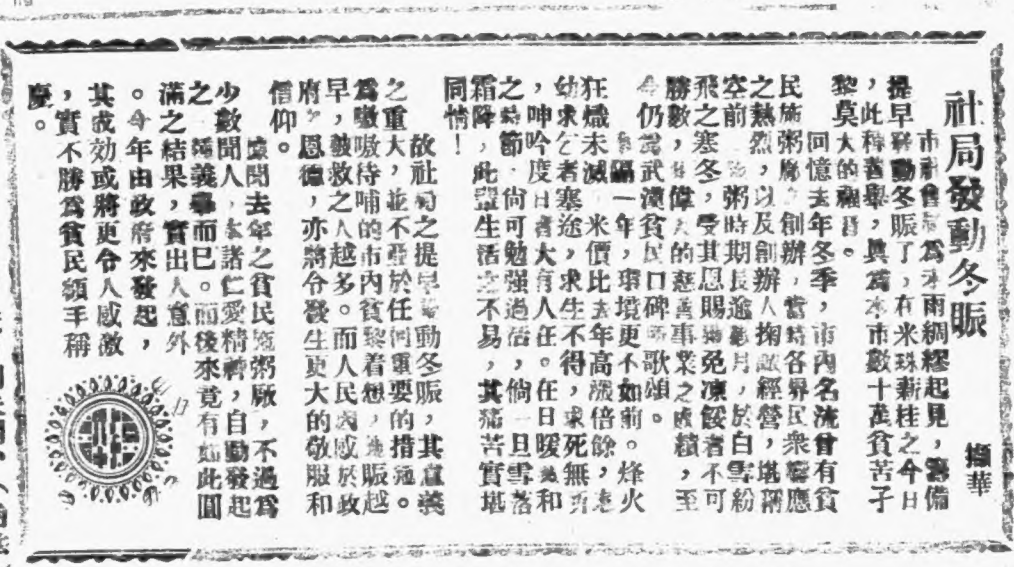 社局發動冬賑
擷華
市社會局爲未雨綢繆起見,籌備
提早發動冬賑了,在米珠薪桂之今日
,此種善舉,眞爲本市數十萬貧苦孑
黎莫大的福音。
回憶去年冬季,市內名流曾有貧
民施粥廠之創辦,當時各界民衆響應
之熱烈,以及創辦人掬誠經營,堪稱
空前,施粥時期長逾數月,於白雪紛
飛之塞冬,受其恩賜獲免凍餒者不可
勝數,其偉大的慈善事業之成績,至
今仍爲武漢貧民口碑所歌頌。
事隔一年,環境更不如前。烽火
狂熾未滅,米價比去年高漲倍餘,老
幼求乞者塞途,求生不得,求死無所
,呻吟度日者大有人在。在日暖風和
之時節,尙可勉强過活,倘一旦雪落
霜降,此輩生活之不易,其痛苦實堪
同情!
故社局之提早發動冬賑,其意義
之重大,並不亞於任何重要的措施。
爲嗷嗷待哺的市內貧黎着想,施賑越
早,被救之人越多。而人民因感於政
府之恩德,亦將令發生更大的敬服和
信仰。
憶聞去年之貧民施粥廠,不過爲
少數聞人,本諸仁愛精神,自動發起
之一種義舉而已。而後來竟有如此圓
滿之結果,實出人意外
。今年由政府來發起,
其成効或將更令人感激
,實不勝爲貧民額手稱
慶。